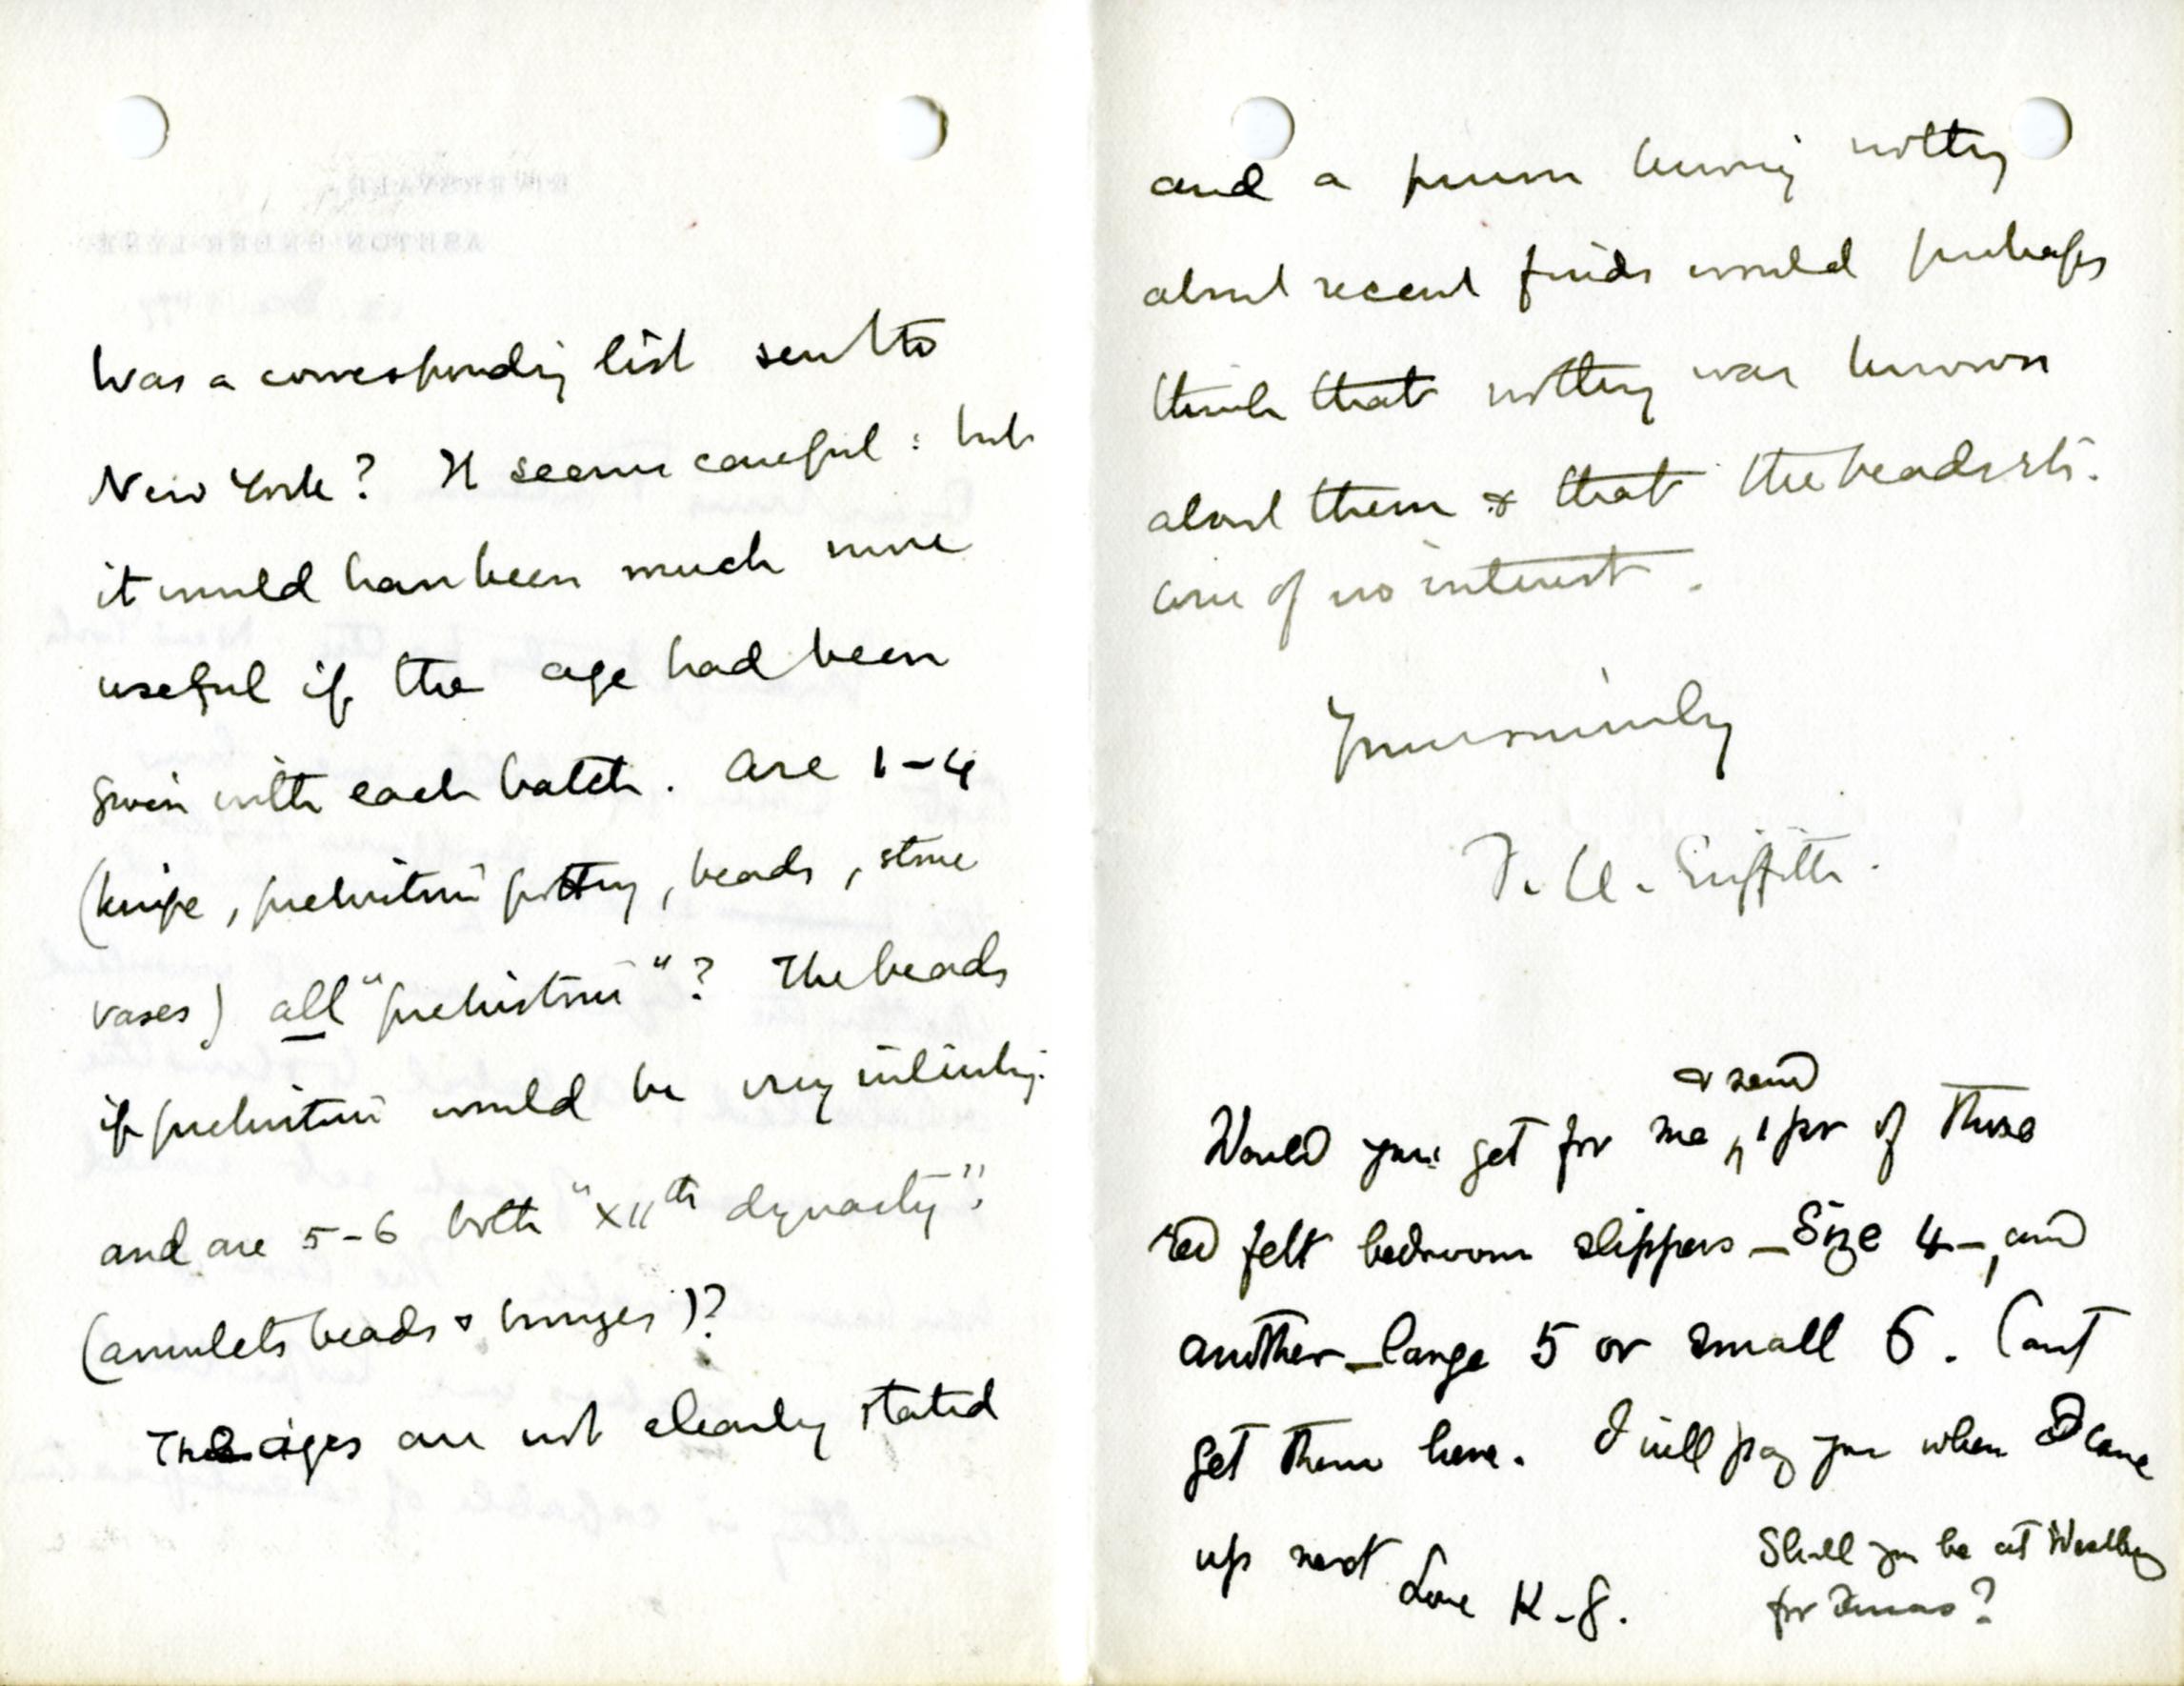 Was a corresponding list sent to
New York? It seems careful: but
it would have been much more
useful if the age had been
given with each batch. Are 1-4
(knife, prehistoric pottery, beads, stone
vases) all "prehistoric"? The beads
if prehistoric would be very interestg.
and are 5-6 both "XIIth dynasty"
(amulets beads & bronzes)?
The ages are not clearly stated
and a person knowing nothing
about recent finds would perhaps
think that nothing was known
about them & that the beads etc.
are of no interest.
Yours sincerely
F. Ll. Griffith.
& send
Would you get for me, 1 pr of those
red felt bedroom slippers - Size 4 -, and
another - large 5 or small 6. Cant
get them here. I will pay you when I come
up next Love K-G.
Shall you be at
for Xmas?